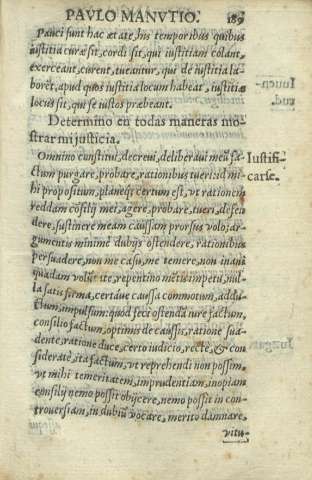 PAVLO MANVTIO. 189
Pauci sunt hac ætate, his temporibus quibus
iustitia curæ sit, cordi sit, qui iustitiam colant,
exerceant, curent, tueantur, qui de iustitia la-
borēt, apud quos iustitia locum habeat, iustitiæ
locus sit, qui se iustos præbeant.
Determino en todas maneras mo-
strar mi justicia.
Iustifi-
carse.
Omnino constitui, decreui, deliberaui meū fa-
ctum purgare, probare, rationibus tueri: id mi-
hi propositum, planeq; certum est, vt rationem
reddam cōsilij mei, agere, probare, tueri, defen
dere, sustinere meam caussam prorsus volo: ar-
gumentis minimè dubijs ostendere, rationibus
persuadere, non me casu, me temere, non inani
quadam volūtate, repentino mētis impetu, nul-
la satis firma, certáue caussa commotum, addu-
ctum, impulsum: quod feci ostendā iure factum,
consilio factum, optimis de caussis, ratione sua-
dente, ratione duce, certo iudicio, rectè, & con-
siderate, ita factum, vt reprehendi non possim,
vt mihi temeritatem, imprudentiam, inopiam
consilij nemo possit obijcere, nemo possit in con-
trouersiam, in dubiū vocare, meritò dānare,
vitu-